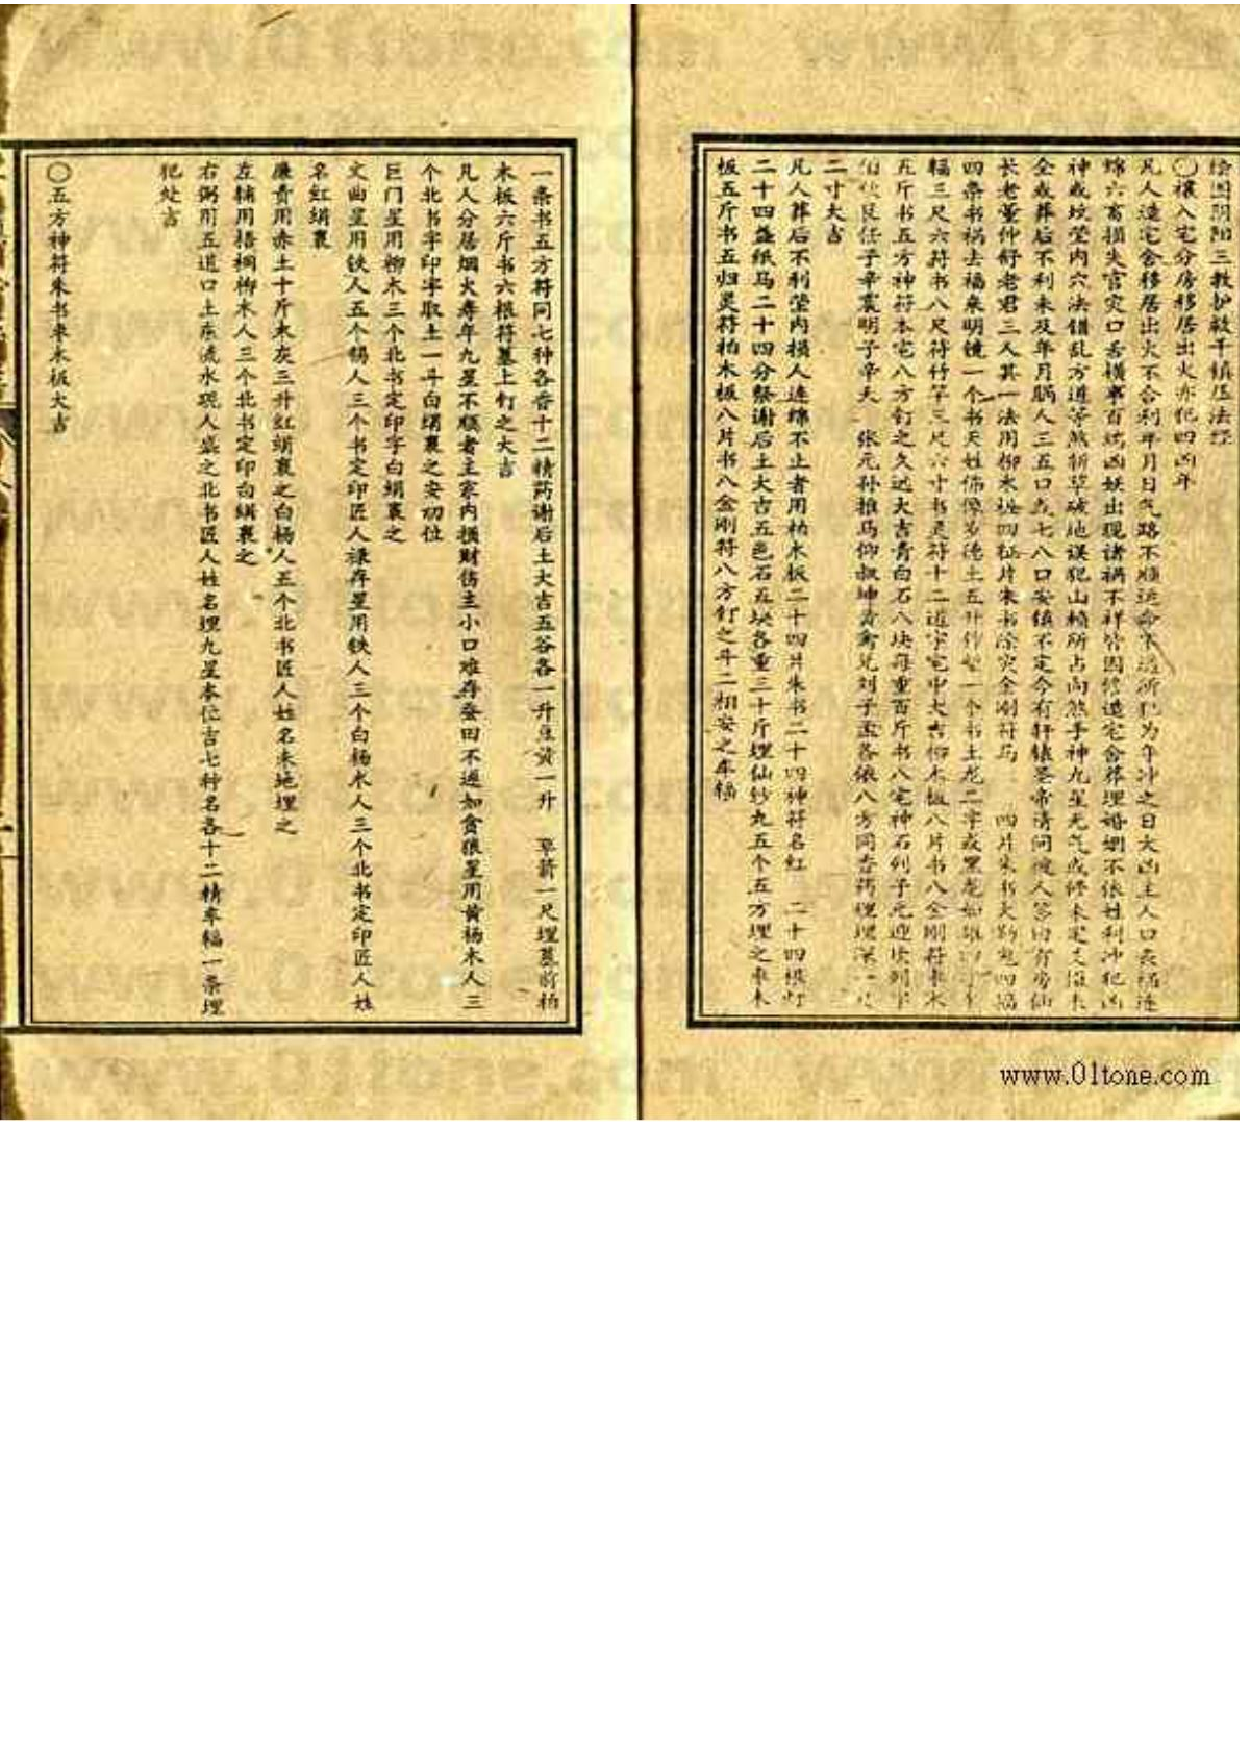 绘图阴阳三教护救千镇压法经
○禳入宅分房移居出火亦犯四凶年
凡人造宅舍移居出火不合利年月日气路不顺运命不通所犯为午冲之日大凶主人口丧祸连
绵六畜损失官灾口舌横事百端凶妖出现诸祸不祥皆因修造宅舍葬埋婚姻不依姓利冲犯凶
神或坟茔内穴法错乱方道等煞斩草破地误犯山
全或葬后不利未及年月瞒人三五口或七八口安镇不定今有轩辕圣帝请问
长老董仲舒老君三人其一法用柳木板四 片朱书除灾金刚符
四条书祸去福来明镜一个书天姓佛像 土五升 一个书土龙二字
辐三尺六寸书八尺符竹竿三尺六寸书灵符十二道 宅中大吉柳木板八片书八金刚符枣木
五斤书五方神符本宅八方钉之久远大吉青白石八块每重百斤书八宅神石列子元
任子辛 明子辛夫 张元孙推马仰叔坤 兑刘子 各依八方同香药埋
二寸大吉
凡人葬后不利茔内损人连绵不止者用柏木板二十四片朱书二十四神符名红 二十四根钉
二十四盏纸马二十四分祭谢后土大吉五色石五块各重三十斤埋仙钞九五个五方埋之枣木
板五斤书五归灵符柏木板八片书八金刚符八方钉之斗二相安之车辐
一条书五方符同七种各香十二精药谢后土大吉五谷各一升 黄一升 草箭一尺埋墓前柏
木板六斤书六根符墓上钉之大吉
凡人分居烟火寿年九星不顺者主家内损财伤主小口难存蚕田不遂如贪狼星用黄杨木人三
个北书字印字取土一斗白绢裹之安初位
巨门星用柳木三个北书定印字白绢裹之
文曲星用铁人五个锡人三个书定印匠人禄存星用铁人三个白杨木人三个北书定印匠人姓
名红绢裹
廉贵用赤土十斤木灰三升红绢裹之白杨人五个北书匠人姓名未地埋之
左辅用梧桐柳木人三个北书定印白绢裹之
右弼用五道口土东流水砚人盛之北书匠人姓名埋九星本位吉七种名各十二精车辐一条埋
犯处吉
○五方神符朱书枣木板大吉
www.01tone.com